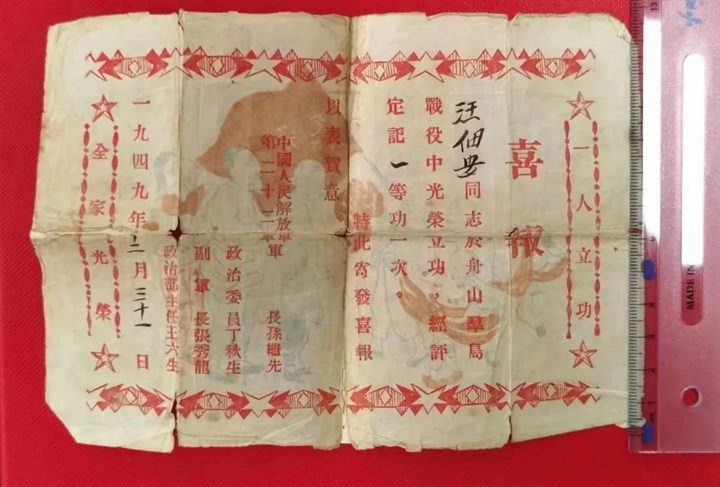 一人立功
喜報
汪佃安同志於舟山羣島
戰役中光榮立功，經評
定記一等功一次。
特此寄發喜報
以表賀意
中國人民解放軍
第二十二軍軍長孫繼先
政治委員丁秋生
副軍長張秀龍
政治部主任王六生
一九四九年十二月三十一日
全家光榮
MADE IN